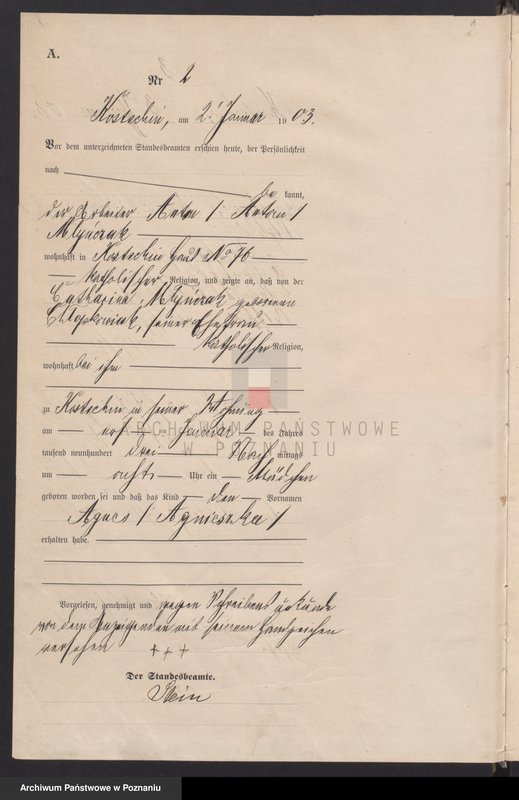 2
A.
Nr 2
Kostschin, am 2. Januar 1903.
Vor dem unterzeichneten Standesbeamten erschien heute, der Persönlichkeit
nach be kannt,
der Arbeiter Anton / Antoni /
Młyńczak
wohnhaft in Kostschin Haus No 76
katholischer Religion, und zeigte an, daß von der
Catharina Młyńczak geborenen
seiner Ehefrau
katholischer Religion,
wohnhaft bei ihm
zu Kostschin in seiner Wohnung
am ersten Januar des Jahres
tausend neunhundert drei Nach mittags
um acht Uhr ein Mädchen
geboren worden sei und daß das Kind den Vornamen
Agnes / Agnieszka /
erhalten habe.
Vorgelesen, genehmigt und wegen Schreibensunkunde
von dem Anzeigenden mit seinem Handzeichen
versehen +++
Der Standesbeamte.
Stein
ARCHIWUM PAŃSTWOWE
W POZNANIU
Archiwum Państwowe w Poznaniu